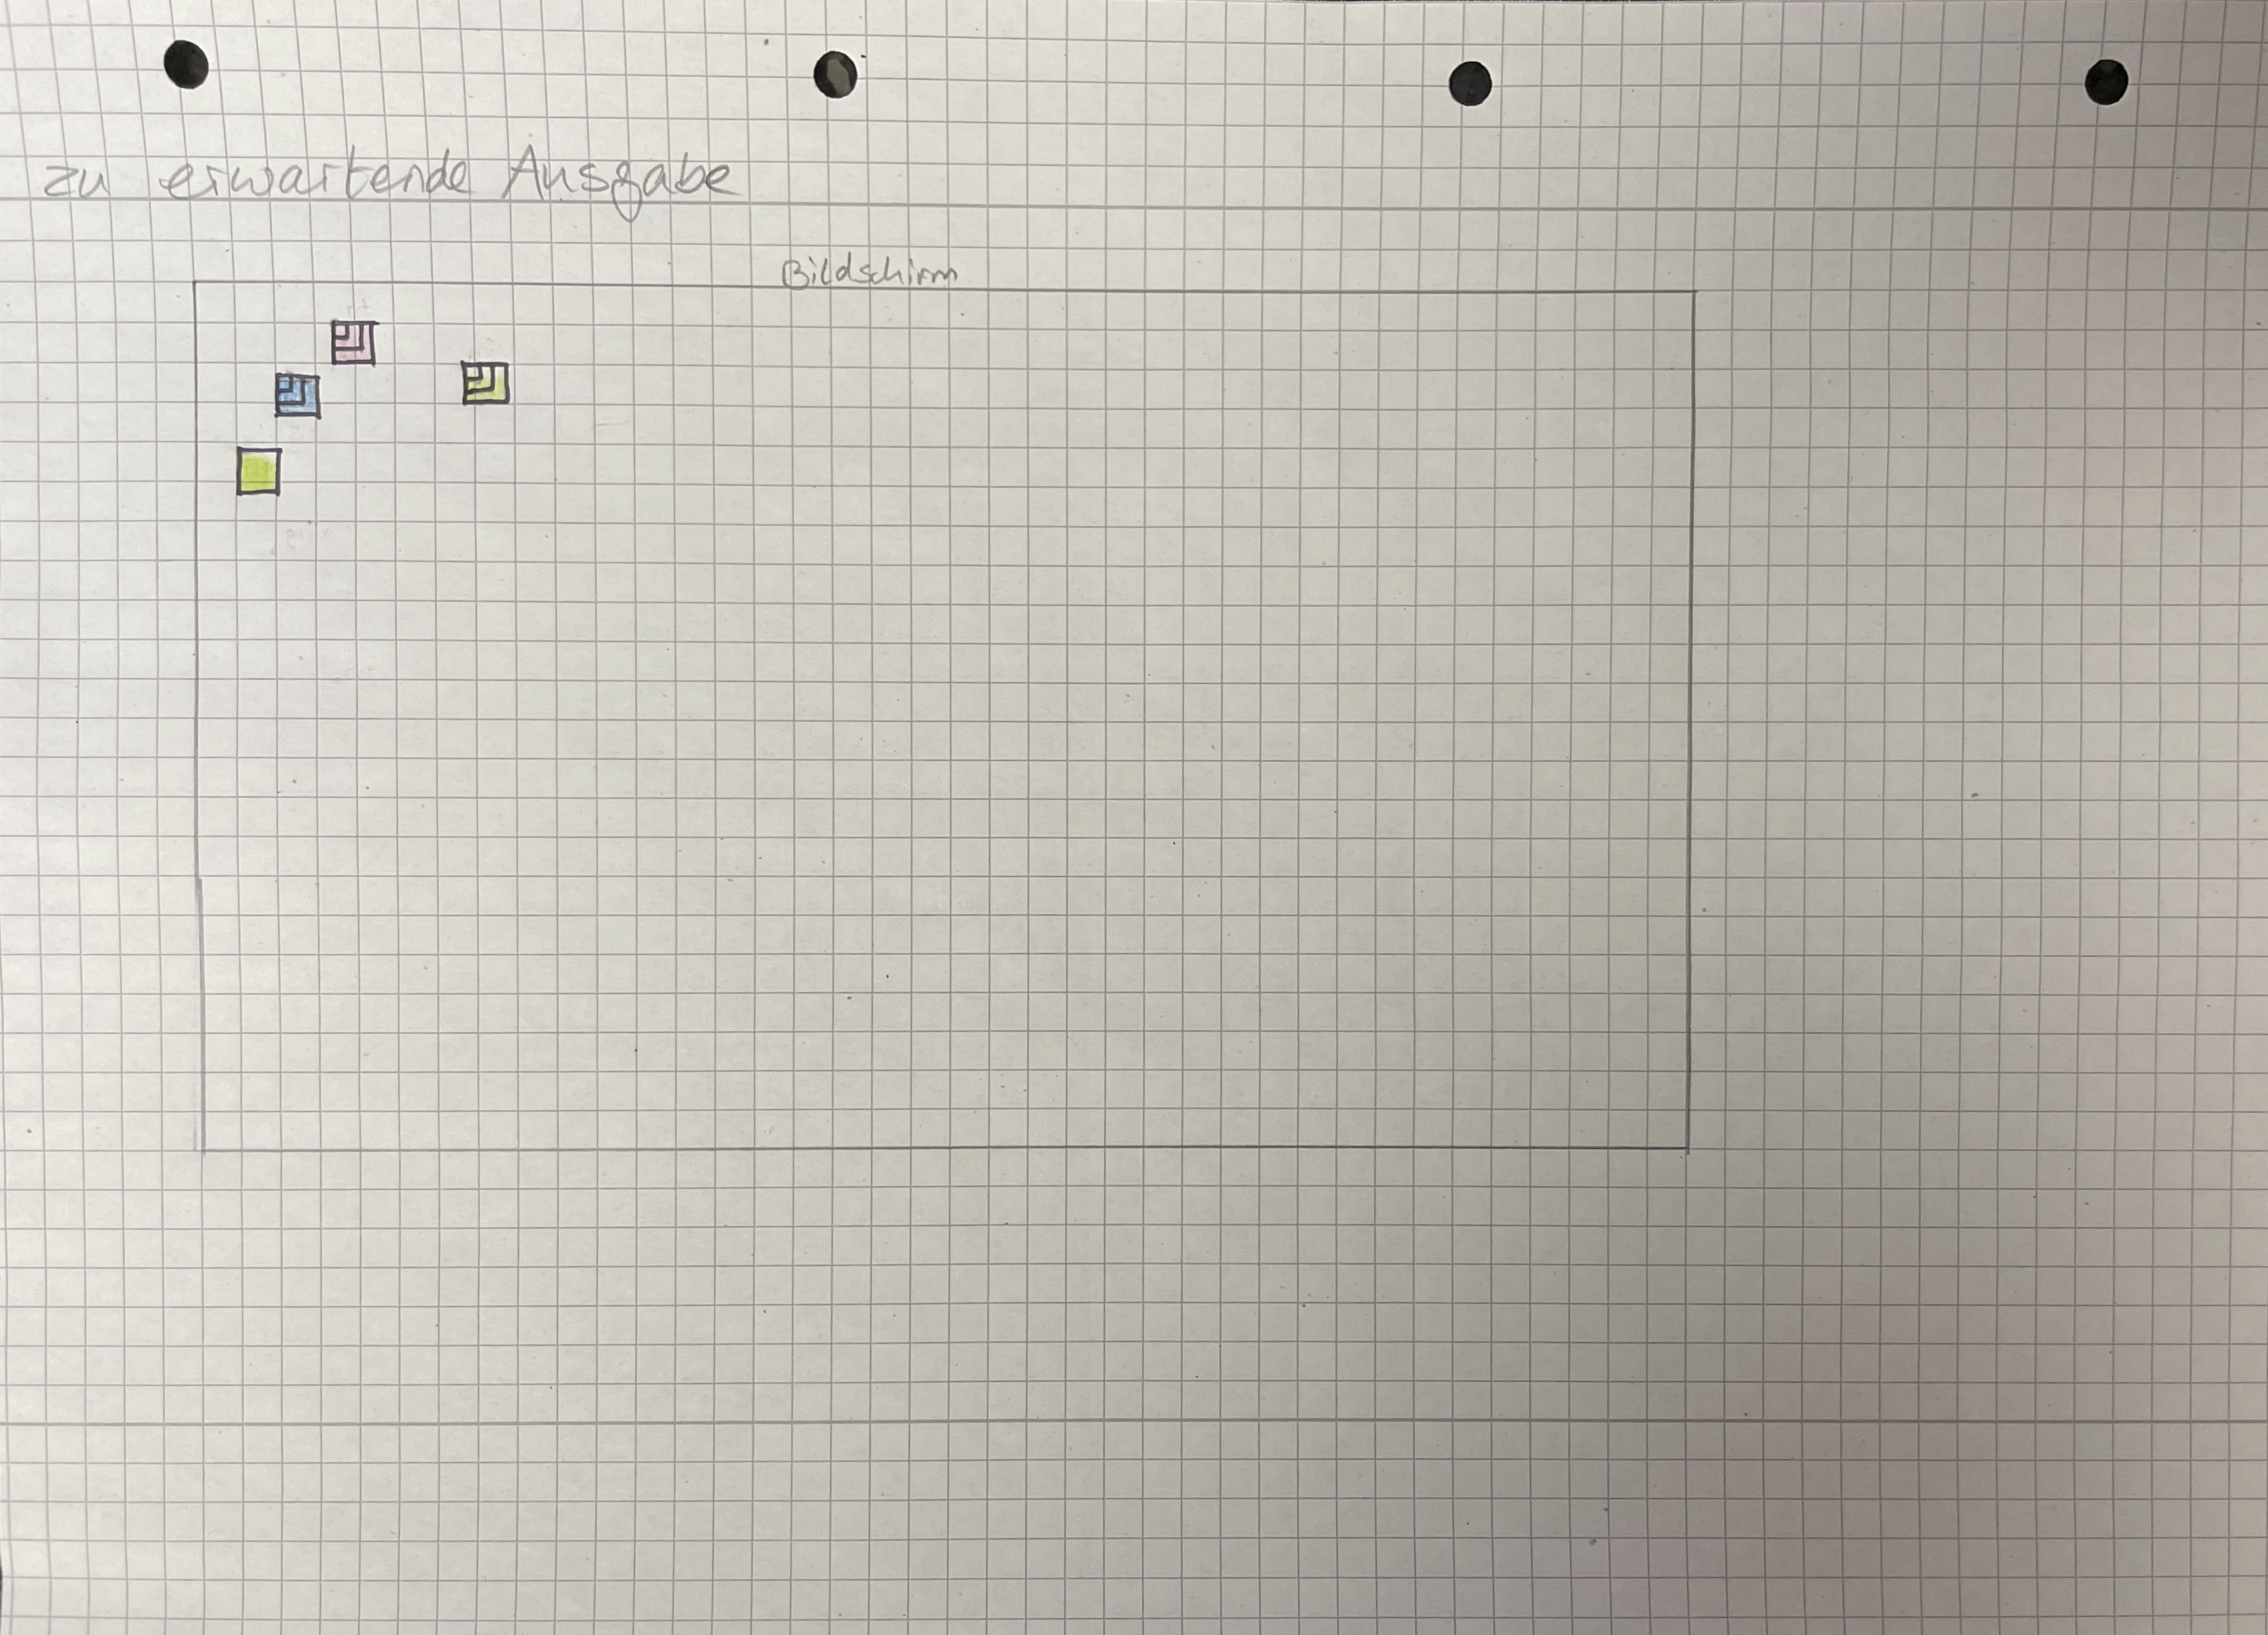 zu erwartende Ausgabe
Bildschirm